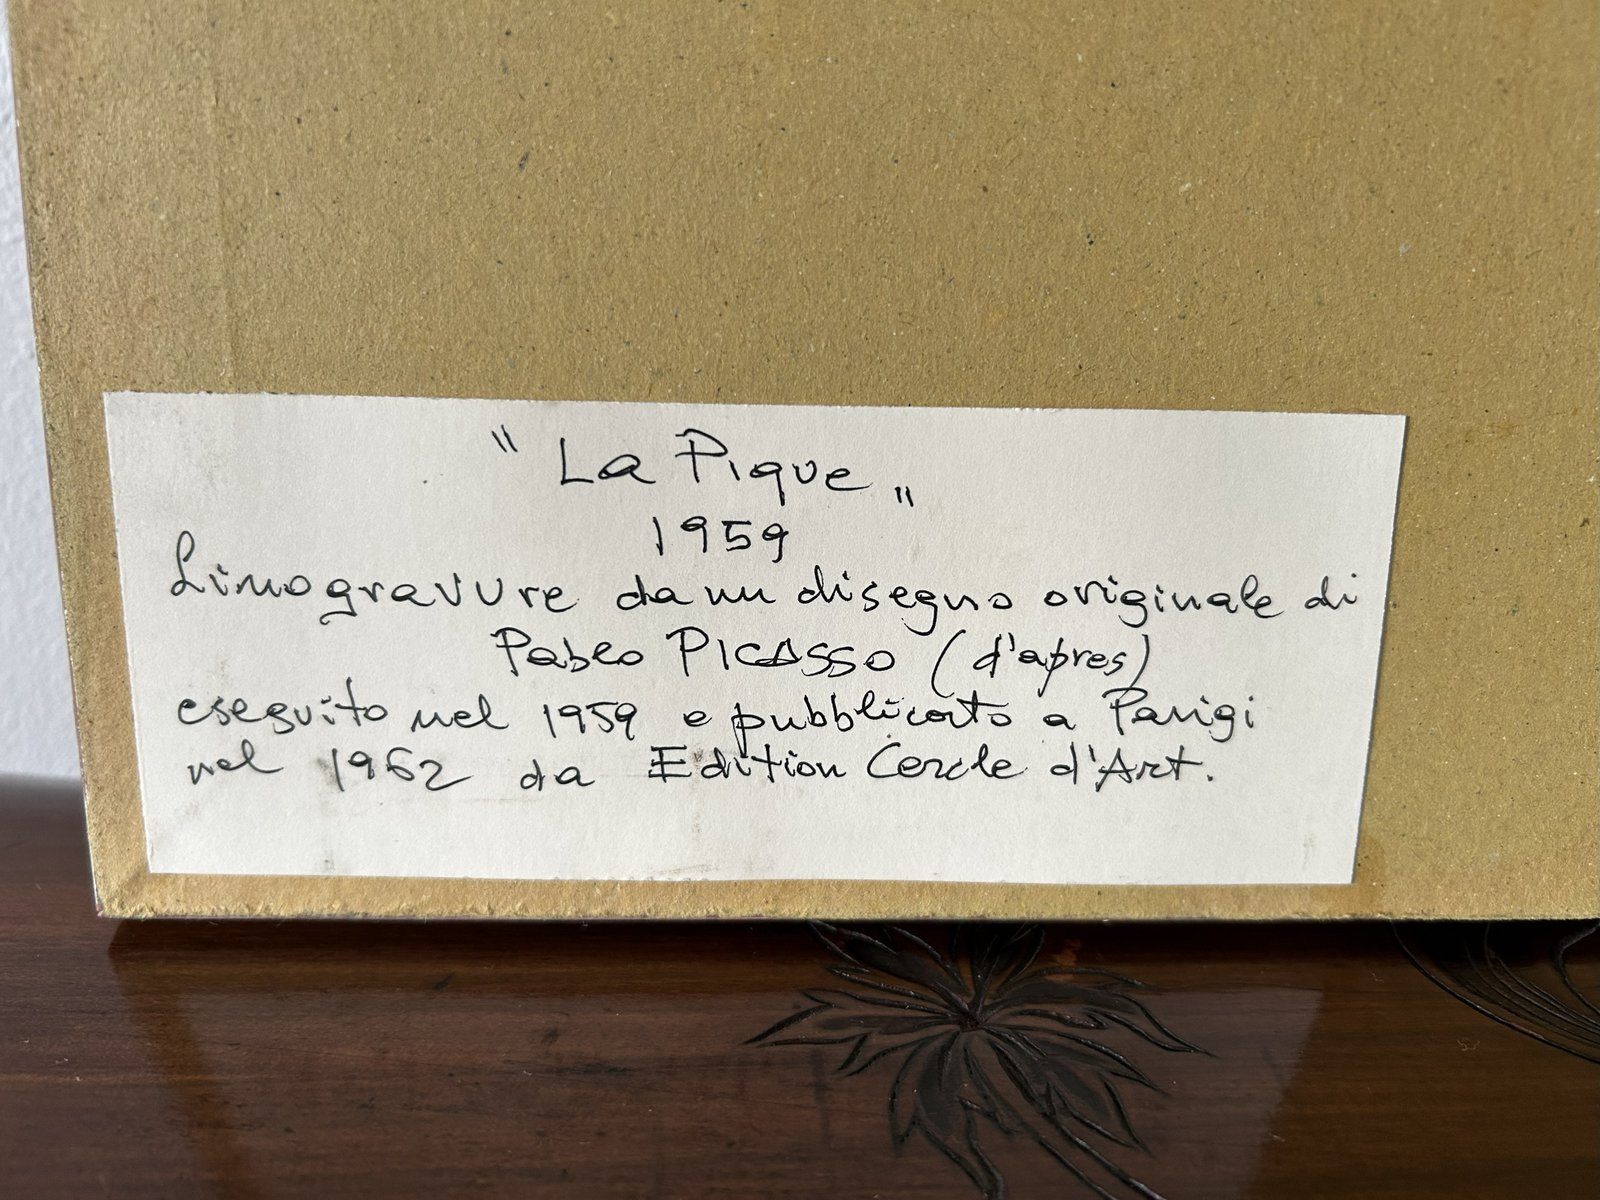 "La Pique"
1959
Linogravure da un disegno originale di
Pablo PICASSO (d'apres)
eseguito nel 1959 e pubblicato a Parigi
nel 1962 da Edition Cercle d'Art.